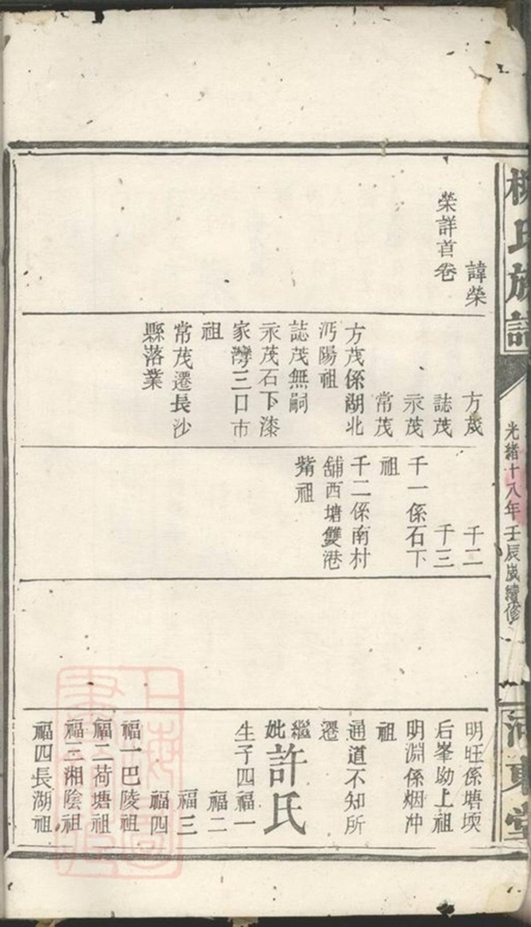 氏族譜
光緒十八年壬辰歲續修
河東堂
諱榮
榮詳首卷
方茂
誌茂
永茂
常茂
方茂係湖北
沔陽祖
誌茂無嗣
永茂石下漆
家灣三口市
祖
常茂遷長沙
縣落業
千二
千三
千一係石下
祖
千二係南村
舖西塘雙港
觜祖
明旺係塘堧
后峯坳上祖
明淵係烟冲
祖
通道不知所
遷
繼妣許氏
生子四福一
福二
福三
福四
福一巴陵祖
福二荷塘祖
福三湘陰祖
福四長湖祖